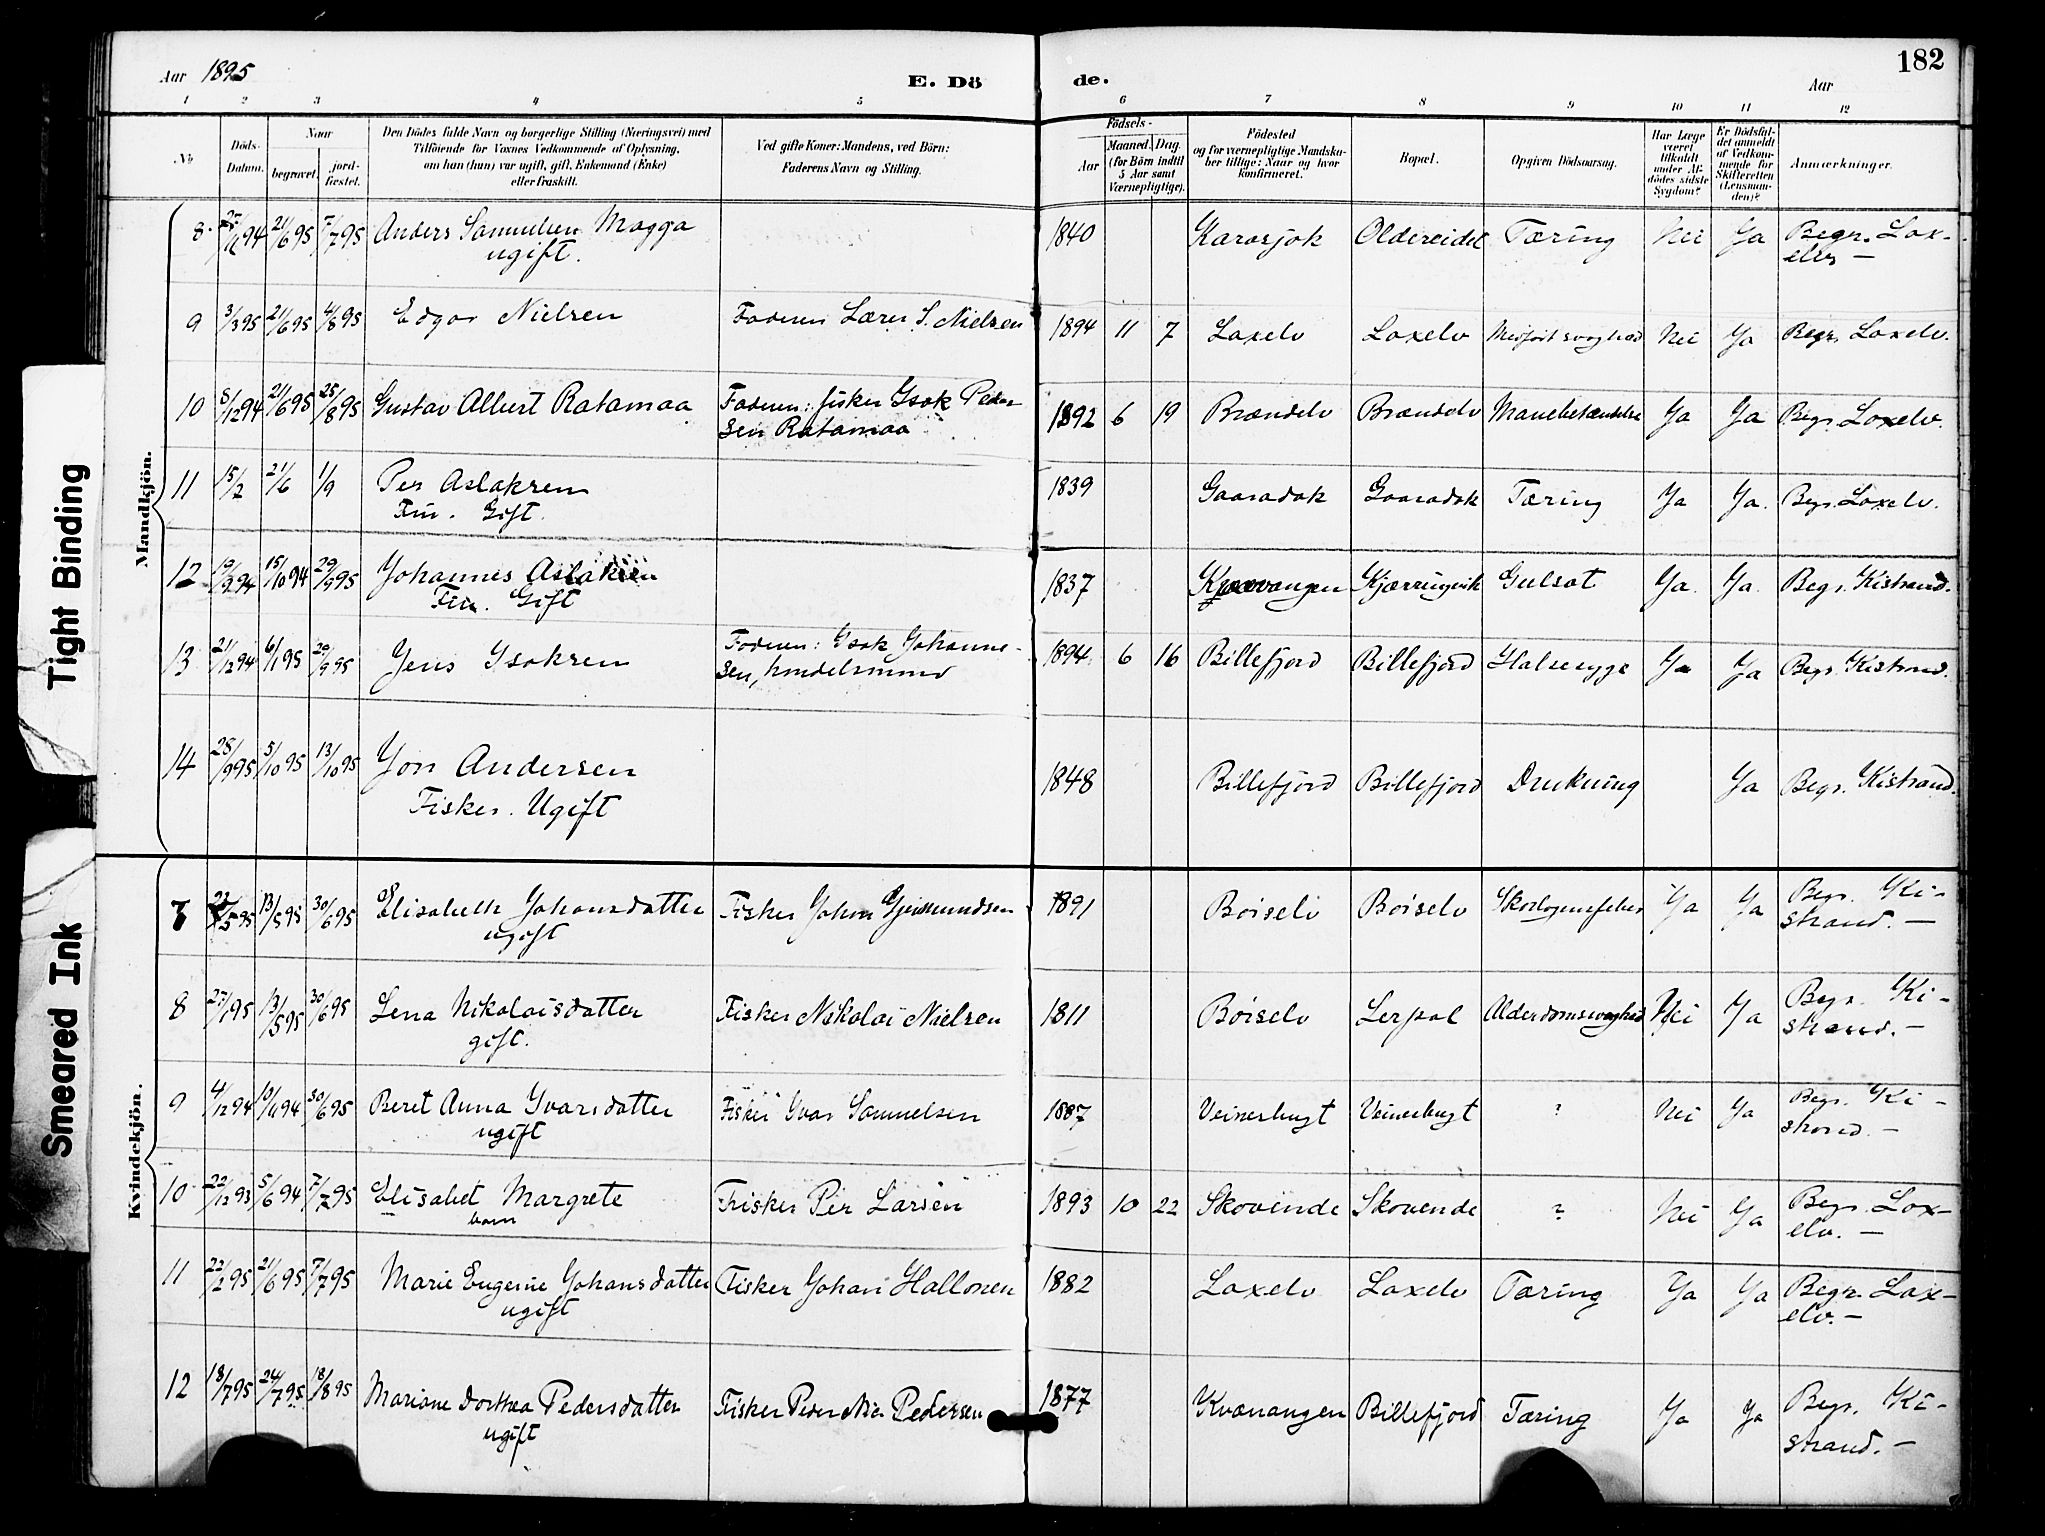 182
Aar 1895
E. Döde.
Aar
1 2 3 4 5 6 7 8 9 10 11 12
No
Döds-Datum.
Naar
begravet.
jord-fæstet.
Den Dödes fulde Navn og borgerlige Stilling (Næringsvei) med
Tilföiende for Voxnes Vedkommende af Oplysning,
om han (hun) var ugift, gift, Enkemand (Enke)
eller fraskilt.
Ved gifte Koner: Mandens, ved Börn:
Faderens Navn og Stilling.
Födsels-
Aar
Maaned. Dag.
(for Börn indtil
5 Aar samt
Værnepligtige).
Födested
og for værnepligtige Mandska-
ber tillige: Naar og hvor
konfirmeret.
Bopæl.
Opgiven Dödsaarsag.
Har Læge
været
tilkaldt
under Af-
dödes sidste
Sygdom?
Er Dödsfal-
det anmeldt
af Vedkom-
mende for
Skifteretten
(Lensman-
den)?
Anmærkninger.
Mandkjön.
8 94 21/6 95 7/7 95 Anders Samuelsen Magga 1840 Karasjok Oldereidet Tæring Nei Ja Begr. Lax-
ugift. elv —
9 3/3 95 21/6 95 4/8 95 Edgar Nielsen Faderen Lærer S. Nielsen 1894 11 7 Laxelv Laxelv Medfödt svaghed Nei Ja Begr. Laxelv.
10 5/12 94 21/6 95 25/8 95 Gustav Albert Ratamaa Faderen: fisker Isak Peder- 1892 6 19 Brændelv Brændelv Mavebetændelse Ja Ja Begr. Laxelv.
sen Ratamaa
11 15/2 21/6 1/9 Per Aslaksen 1839 Gaaradak Gaaradak Tæring Ja Ja. Begr. Laxelv.
Fin. Gift.
12 19/9 94 15/10 94 29/9 95 Johannes Aslaksen 1837 Kjærringvik Gulsot Ja. Ja. Begr. Kistrand.
Fin. Gift
13 21/12 94 6/1 95 29/9 95 Jens Isaksen Faderen: Isak Johanne- 1894 6 16 Billefjord Billefjord Halsesyge Ja Ja Begr. Kistrand.
sen, handelsmand
14 28/9 95 5/10 95 13/10 95 Jon Andersen 1848 Billefjord Billefjord Drukning Ja Begr. Kistrand.
Fisker. Ugift
Kvindekjön.
7 95 13/5 95 30/6 95 Elisabeth Johansdatter Fisker Johan 1891 Börselv Börselv Ja Ja Begr. Ki-
ugift strand. —
8 27/1 95 13/5 95 30/6 95 Lena Nikolaisdatter Fisker Nikolai Nielsen 1811 Börselv Lerpol Alderdomssvaghed Nei Ja Begr. Ki-
gift. strand. —
9 4/12 94 94 30/6 95 Beret Anna Ivarsdatter Fisker Ivar Samuelsen 1887 Veinesbugt Veinesbugt ? Nei Ja Begr. Ki-
ugift strand. —
10 22/12 93 5/6 94 7/7 95 Elisabet Margrete Fisker Per Larsen 1893 10 22 Skovende Skovende ? Nei Ja Begr. Lax-
barn elv. —
11 22/2 95 21/6 95 7/7 95 Marie Eugenie Johansdatter Fisker Johan Hallonen 1882 Laxelv Laxelv Tæring Ja Ja Begr. Lax-
ugift elv. —
12 18/7 95 24/7 95 18/8 95 Mariane Dorthea Pedersdatter Fisker Peder Pedersen 1877 Kvænangen Billefjord Tæring Ja Ja Begr. Ki-
ugift strand. —
Tight Binding
Smeared Ink